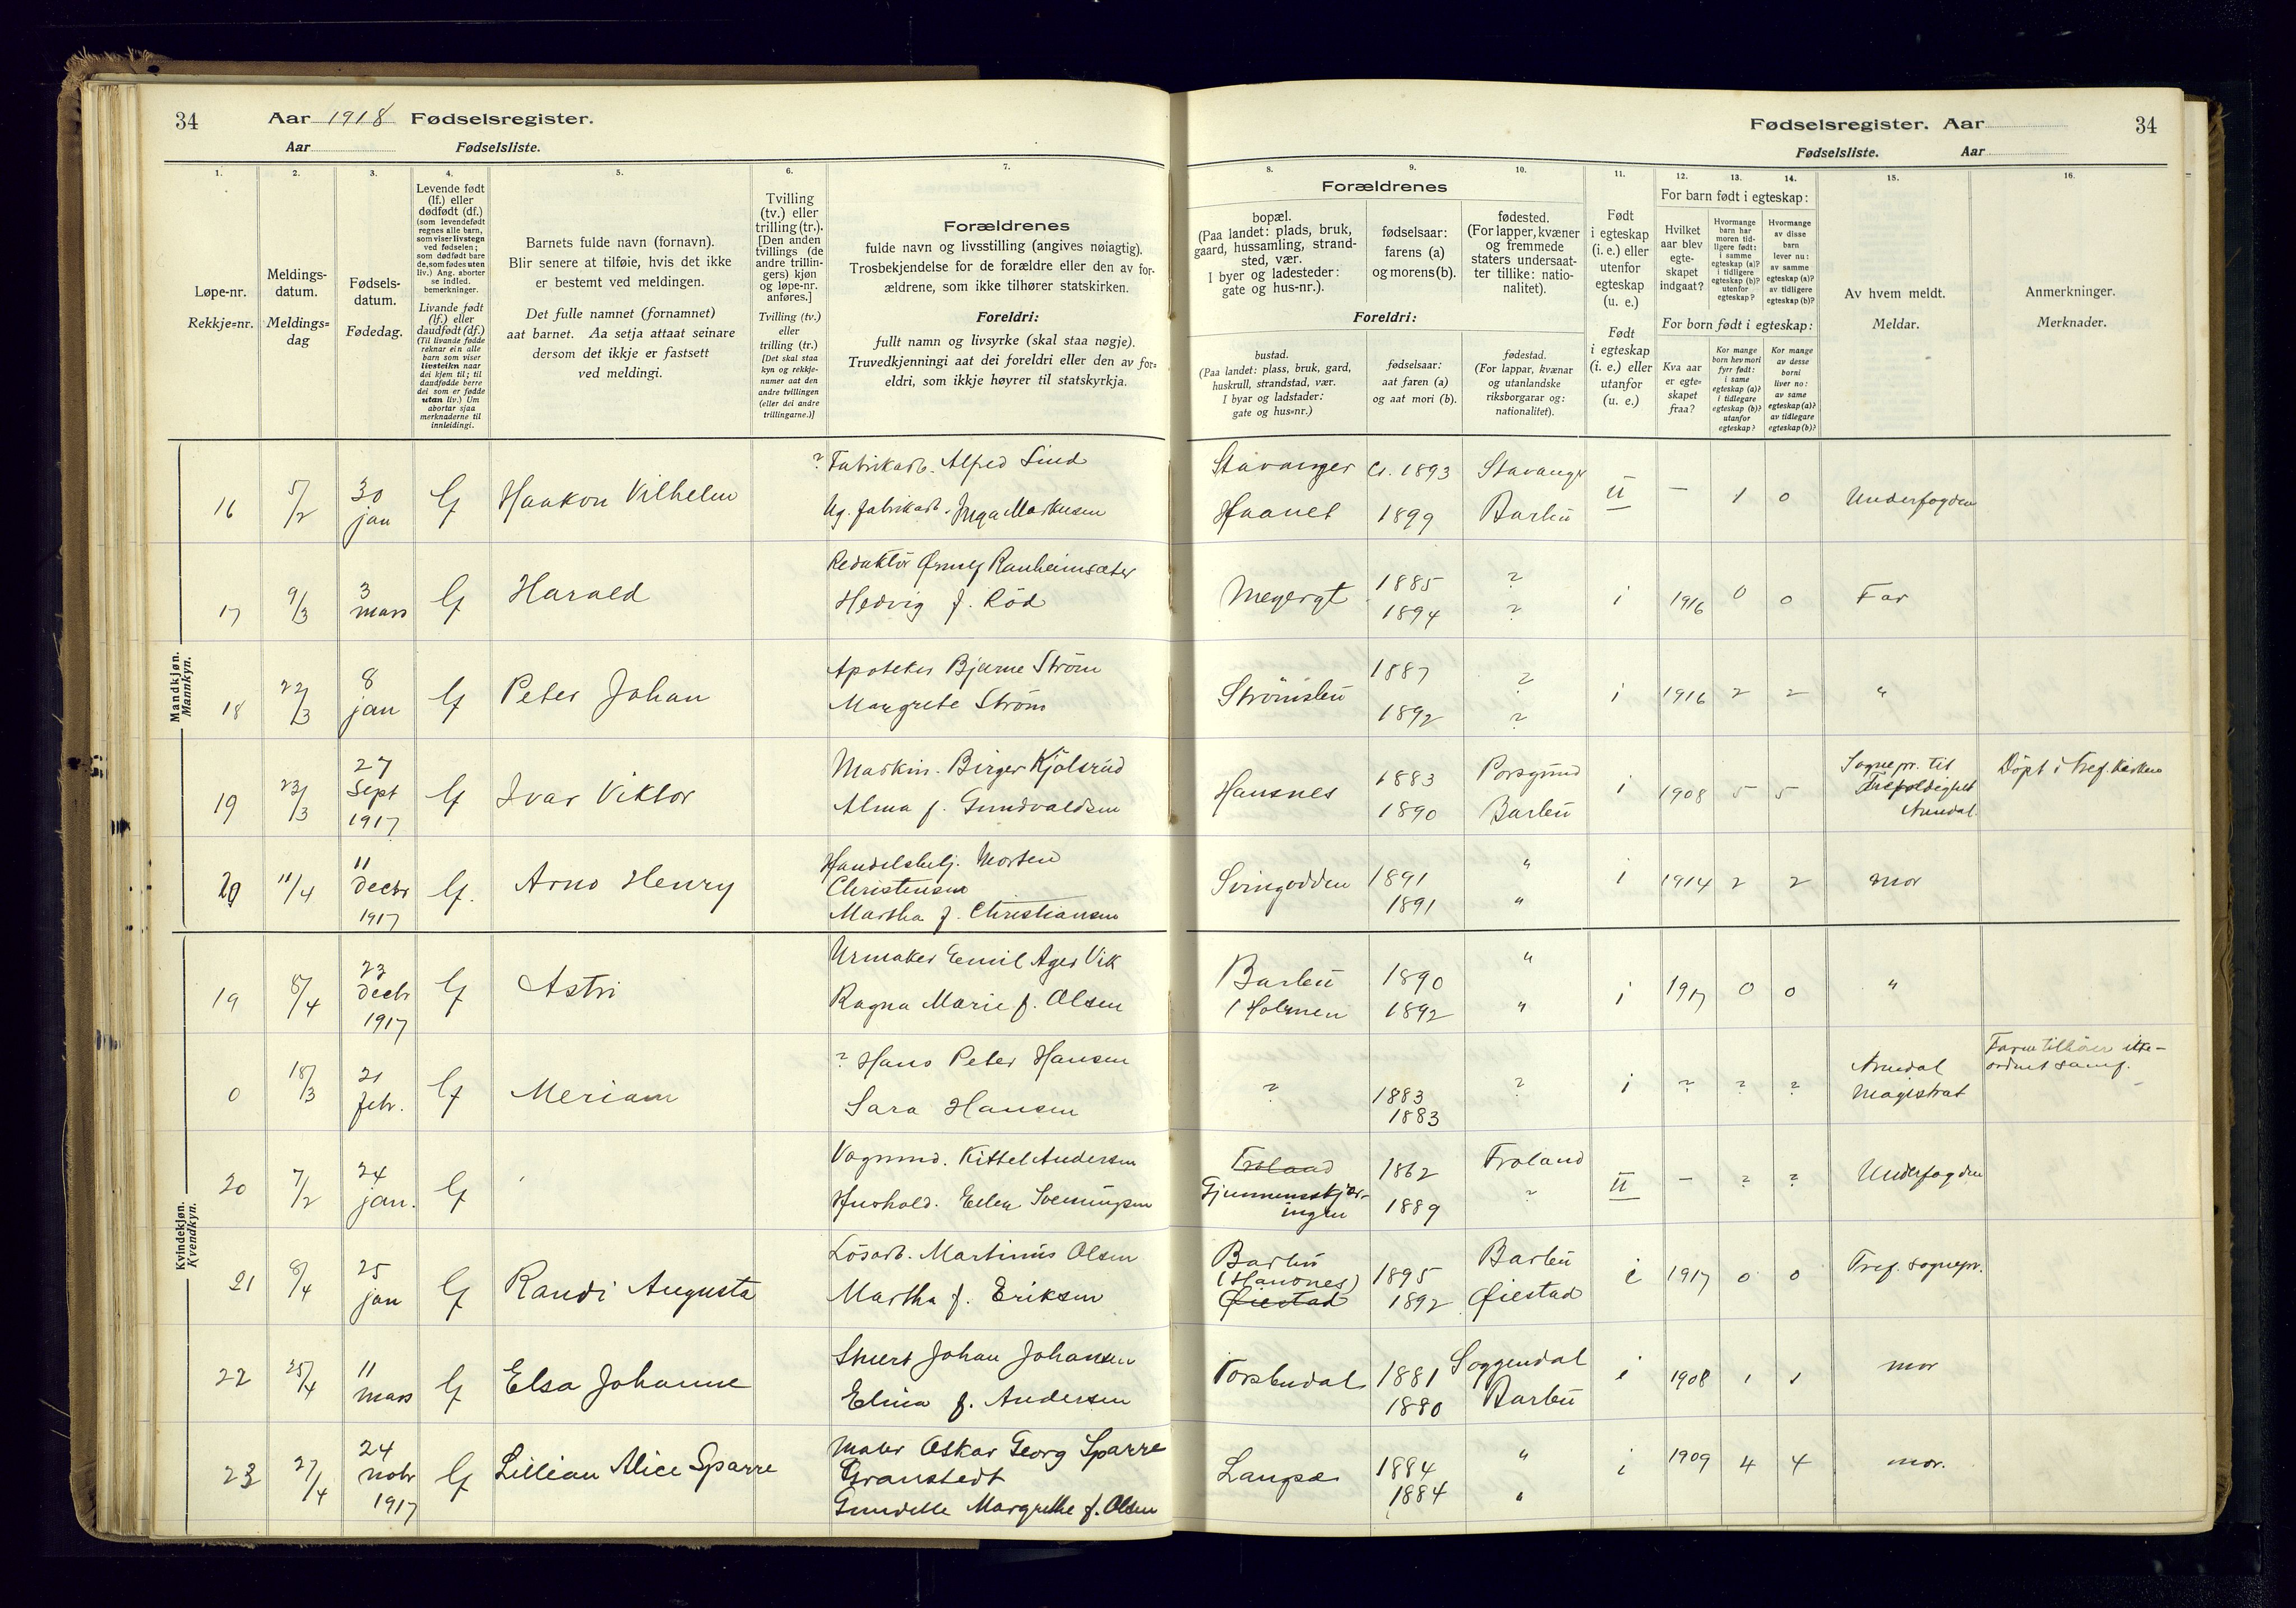 34
Aar 1918 Fødselsregister.
Aar Fødselsliste.
Fødselsregister. Aar
34
Fødselsliste. Aar
1.
Løpe-nr.
Rekkje=nr.
2.
Meldings-
datum.
Meldings=
dag
3.
Fødsels-
datum.
Fødedag.
4.
Levende født
(lf.) eller
dødfødt (df.)
(som levendefødt
regnes alle barn,
som viser livstegn
ved fødselen;
som dødfødt bare
de, som fødes uten
liv.) Ang. aborter
se indled.
bemerkninger.
Livande født
(lf.) eller
daudfødt (df.)
(Til livande fødde
reknar ein alle
barn som viser
livsteikn naar
dei kjem til; til
daudfødde berre
dei som er fødde
utan liv.) Um
abortar sjaa
merknaderne til
innleidingi.
5.
Barnets fulde navn (fornavn).
Blir senere at tilføie, hvis det ikke
er bestemt ved meldingen.
Det fulle namnet (fornamnet)
aat barnet. Aa setja attaat seinare
dersom det ikkje er fastsett
ved meldingi.
6.
Tvilling
(tv.) eller
trilling (tr.).
[Den anden
tvillings (de
andre trillin-
gers) kjøn
og løpe-nr.
anføres.]
Tvilling (tv.)
eller
trilling (tr.)
[Det skal staa
kyn og rekkje-
numer aat den
andre tvillingen
(eller dei andre
trillingarne.)]
7.
Forældrenes
fulde navn og livsstilling (angives nøiagtig).
Trosbekjendelse for de forældre eller den av for-
ældrene, som ikke tilhører statskirken.
Foreldri:
fullt namn og livsyrke (skal staa nøgje).
Truvedkjenningi aat dei foreldri eller den av for-
eldri, som ikkje høyrer til statskyrkja.
8. 9. 10.
Forældrenes
bopæl.
(Paa landet: plads, bruk,
gaard, hussamling, strand-
sted, vær.
I byer og ladesteder:
gate og hus-nr.).
fødselsaar:
farens (a)
og morens (b).
fødested.
(For lapper, kvæner
og fremmede
staters undersaat-
ter tillike: natio-
nalitet).
Foreldri:
bustad.
(Paa landet: plass, bruk, gard,
huskrull, strandstad, vær.
I byar og ladstader:
gate og hus=nr.)
fødselsaar:
aat faren (a)
og aat mori (b).
fødestad.
(For lappar, kvænar
og utanlandske
riksborgarar og:
nationalitet).
11.
Født
i egteskap
(i. e.) eller
utenfor
egteskap
(u. e.)
Født
i egteskap
(i. e.) eller
utanfor
(u. e.)
12. 13. 14.
For barn født i egteskap:
Hvilket
aar blev
egte-
skapet
indgaat?
Hvormange
barn har
moren tid-
ligere født:
i samme
egteskap (a)?
i tidligere
egteskap (b)?
utenfor
egteskap?
Hvormange
av disse
barn
lever nu:
av samme
egteskap (a)?
av tidligere
egteskap (b)?
For born født i egteskap:
Kva aar
er egte=
skapet
fraa?
Kor mange
born hev mori
fyrr født:
i same
egteskap (a)?
i tidlegare
egteskap (b)?
utanfor
egteskap?
Kor mange
av desse
borni
liver no:
av same
egteskap (a)?
av tidlegare
egteskap (b)?
15.
Av hvem meldt.
Meldar.
16.
Anmerkninger.
Merknader.
Mandkjøn.
Mannkyn.
16 5/2 30 jan lf Haakon Vilhelm
? Fabrikarb. Alfred Lind
Ug. fabrikarb. Inga Markusen
Stavanger Ca. 1893 Stavanger
Haanet 1899 Barbu
II — 1 0 Underfogden
17 9/3 3 mars lf Harald
Redaktör Ørnulf Ranheimsæter
Hedvig f. Röd
Meyergt 1885 ?
1894 ?
i 1916 0 0 Far
18 22/3 8 jan lf Peter Johan
Apoteker Bjarne Ström
Margrete Ström
Strömsbu 1887 ?
1892 ?
i 1916 2 2 "
19 23/3 27 Sept 1917 lf Ivar Viktor
Maskin. Birger Kjölsrud
Alma f. Gundvaldsen
Hansnes 1883 Porsgrund
1890 Barbu
i 1908 5 5 Sognepr. til
Trefoldighet
Arendal.
Döpt i Tref. kirken
20 11/4 11 decbr 1917 lf. Arno Henry
Handelsbetj. Morten
Christensen
Martha f. Christiansen
Svingodden 1891 "
1891 "
i 1914 2 2 mor
Kvindekjøn.
Kvendkyn.
19 8/4 23 decbr 1917 lf Astri
Urmaker Emil Ager Vik
Ragna Marie f. Olsen
Barbu 1890 "
/ Holmen 1892 "
i 1917 0 0 "
0 18/3 21 febr. lf Meriam
? Hans Peter Hansen
Sara Hansen
? 1883 ?
1883
i ? ? ? Arendal
Magistrat
20 7/2 24 jan. lf
Vognmd. Kittel Andersen
Hushold. Ellen Svenningsen
Froland 1862 Froland
1889 ?
II — ? ? Underfogden
21 8/4 25 jan lf Randi Augusta
Lösarb. Martinius Olsen
Martha f. Eriksen
Barbu
(Hansnes) 1895 Barbu
Øiestad 1892 Øiestad
i 1917 0 0 Tref. sognepr.
22 25/4 11 mars lf Elsa Johanne
Stuert Johan Johansen
Elina f. Andersen
Torsbudal 1881 Soggendal
1880 Barbu
i 1908 1 1 mor
23 27/4 24 nobr 1917 lf Lillian Alice Sparre
Maler Oskar Georg Sparre
Granstedt
Gundelle Margrethe f. Olsen
Langsæ 1884 "
1884 "
i 1909 4 4 mor.